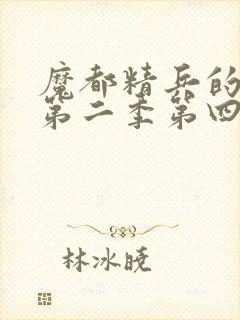 魔都精兵的
第二季第四
林冰晓